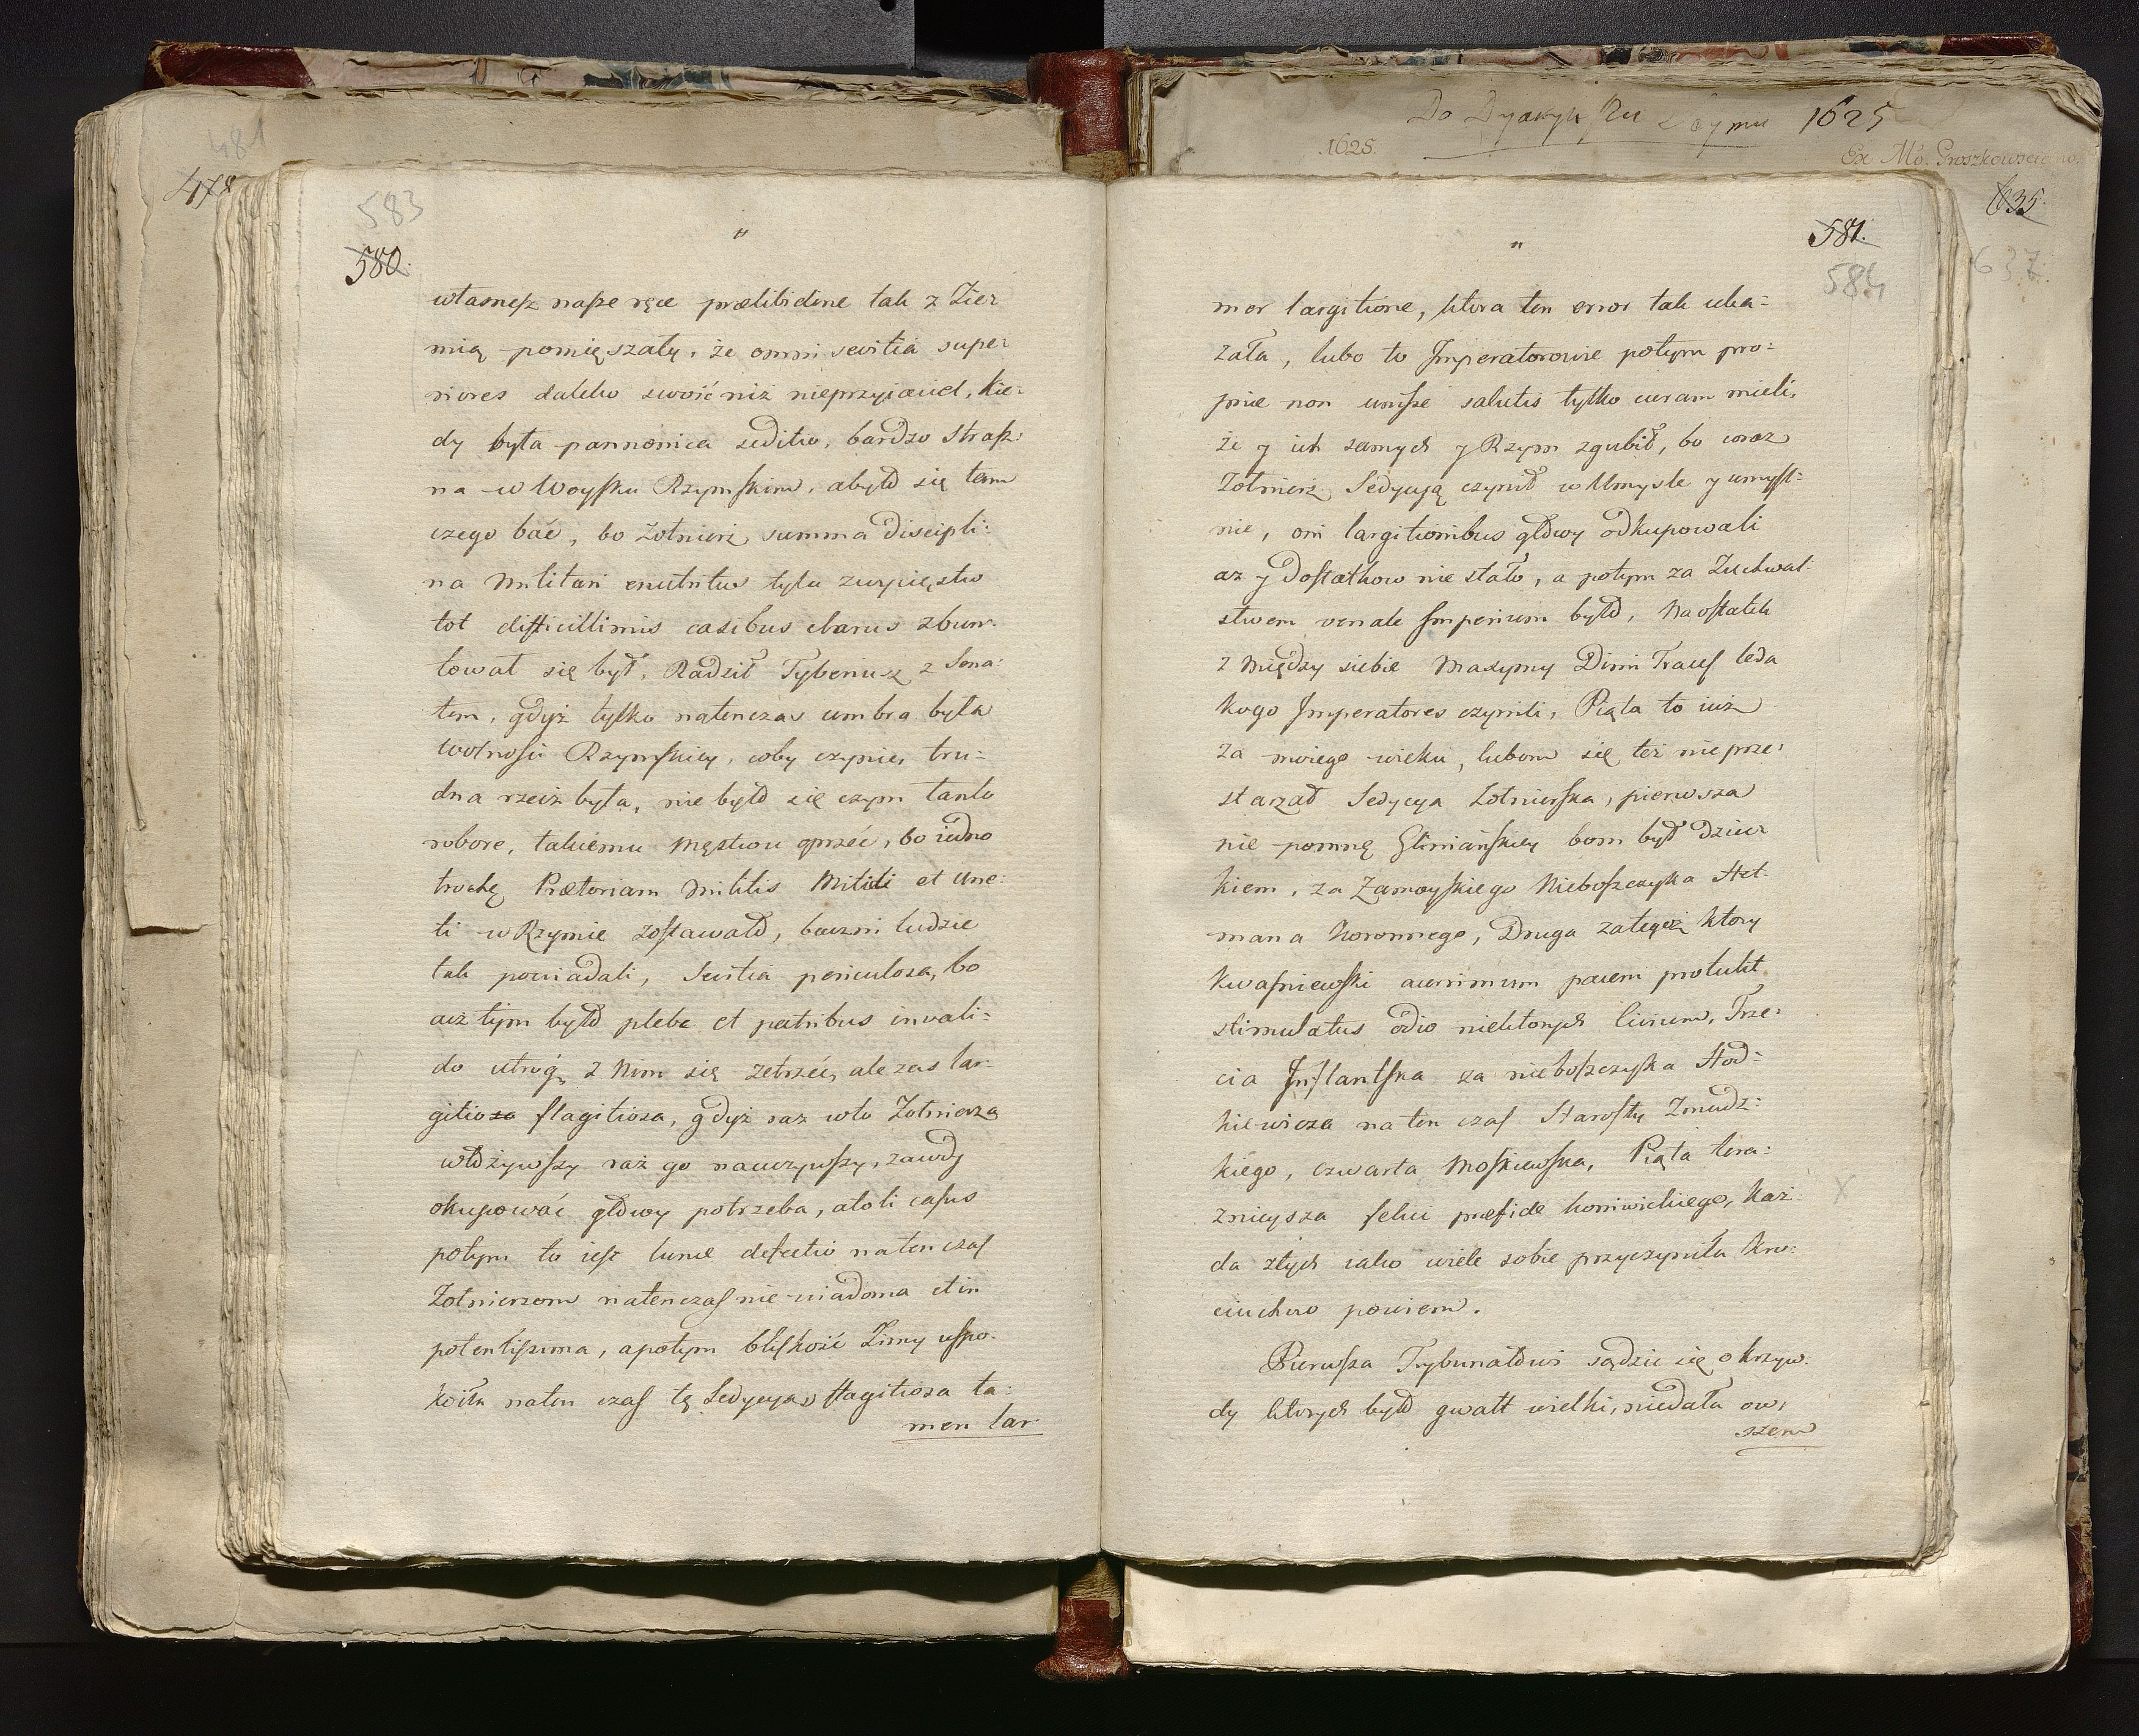 481
478
583
580.
"
własnesz nasze ręce prælibidine tak z Zie=
mią pomięszały, że omni sevitia supe=
riores daleko swoić niż nieprzyiaciel, kie=
dy była pannonica seditio, bardzo strasz=
na w Woysku Rzymskim, abyło się tam
czego bać, bo żołnierz summa discipli=
na militari enutritus tylu zwycięstw
tot difficillimis casibus clarus zbun=
tował się był, Radził Tyberiusz z Sena=
tem, gdyż tylko natenczas umbra była
wolności Rzymskiey, coby czynić, tru=
dna rzecz była, nie było się czym tanto
robore, takiemu męstwu oprzeć, bo iedno
trochę Prætoriam militis Militi et Une=
ti w Rzymie zostawało, baczni ludzie
tak powiadali, Sevitia periculosa, bo
aż tym było plebe et patribus invali=
do utrogą z Nim się zetrzeć, ale zas lar=
gitiosa flagitiosa, gdyż raz w to Żołnierza
włożywszy raż go nauczywszy, zawdy
okupować głowy potrzeba, atoli casus
potym to iest lunæ defectio naten czas
Żołnierzom natenczas nie wiadoma et in
potentissima, apotym bliskość Zimy uspo=
koiła naten czas tę Sedycyą, flagitiosa ta=
men lar
Do Dyaryuszu Seymu 1625
1625.
Ex Mo. Proszkowsciano.
635.
637.
"
581.
584
mer largitione, ktora ten error tak uka=
zała, lubo to Imperatorowie potym pro=
prie non unisze salutis tylko curam mieli,
że y ich samych y Rzym zgubił, bo coraz
Żołnierz Sedycyą czynił w Umyśle y umyśl=
nie, oni largitionibus głowy odkupowali
az y Dostatkow nie stało, a potym za Zuchwal=
stwem venale Imperium było, Naostatek
z między siebie Maxymy Dimi Traces leda
kogo Imperatores czynili, Piąta to iuż
za moiego wieku, lubom się też nie prze=
starzał Sedycya Żołnierska, pierwsza
nie pomnę Glinianskiey bom był dziec=
kiem, za Zamoyskiego Nieboszczyka Het=
mana Koronnego, Druga zategoż ktory
Kwasniewski acerrimum pacem protulit
stimulatus odio niektorych Civium, Trze=
cia Inflantska za nieboszczyka Hod=
kiewicza na ten czas Starosty Zmudz=
kiego, czwarta Moskiewska, Piąta tera=
znieysza felici præside koniwickiego, Kaz=
da złych iako wiele sobie przyczyniła Kro=
ciuchno powiem.
Pierwsza Trybunałowi sądzic się o krzyw=
dy ktorych było gwałt wielki, niedała ow=
szem
X